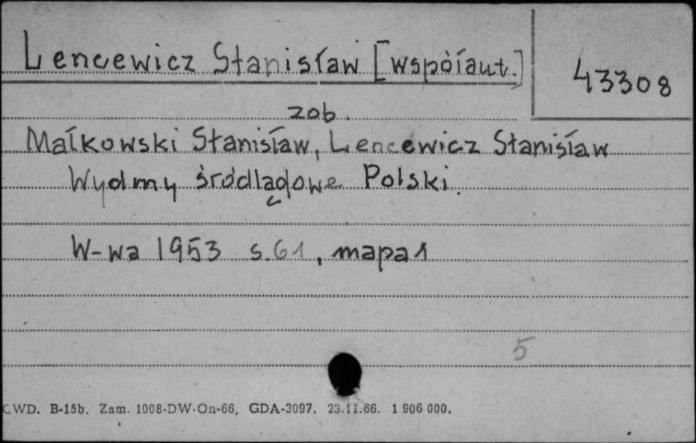 Lencewicz Stanisław [współaut.]
43308
zob.
Małkowski Stanisław, Lencewicz Stanisław
Wydmy śródlądowe Polski.
W-wa 1953 s.61, mapa 1
5
CWD. B-15b. Zam. 1008-DW-On-66. GDA-3097. 23.11.66. 1 906 000.